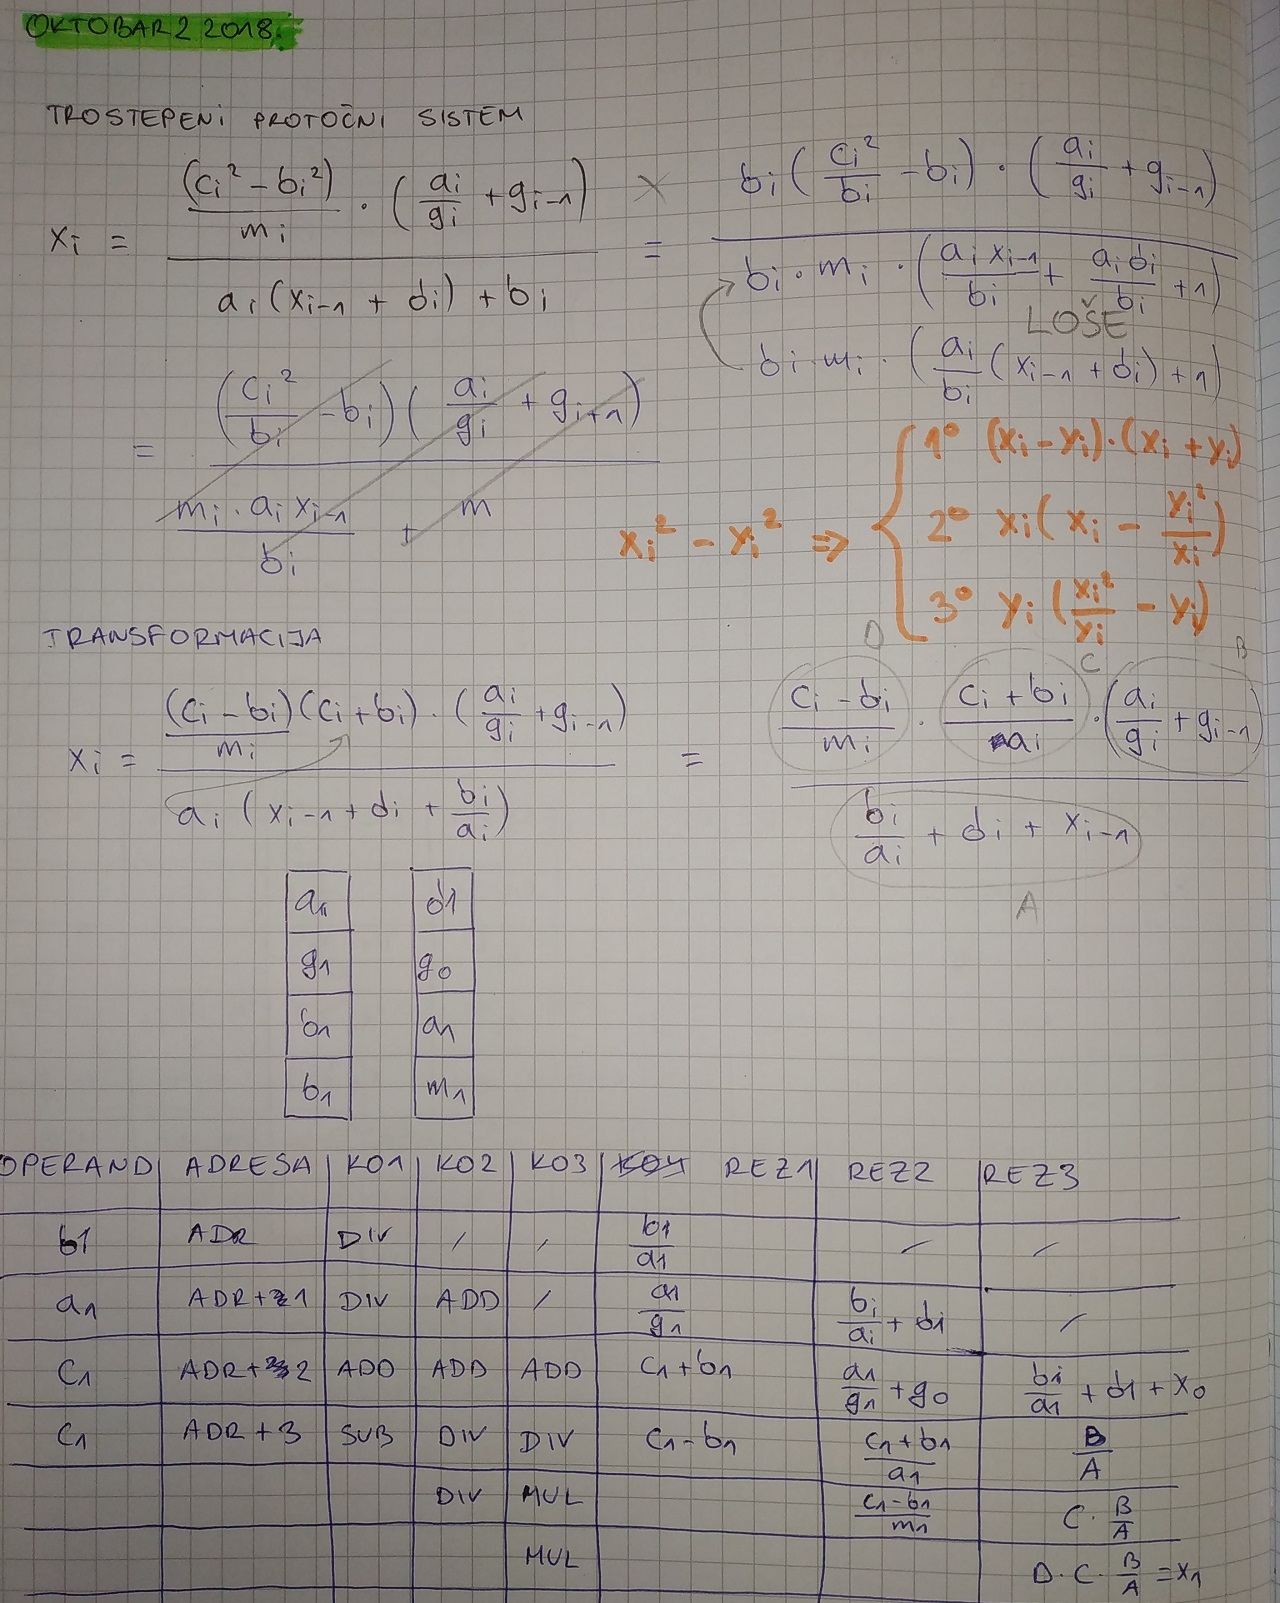 OKTOBAR 2 2018.
TROSTEPENI PROTOČNI SISTEM
xi = ((ci² - bi²)/mi · (ai/gi + gi-1)) / (ai(xi-1 + di) + bi) = (bi(ci²/bi - bi) · (ai/gi + gi-1)) / (bi · mi · (ai xi-1/bi + ai di/bi + 1))
LOŠE
bi · mi · (ai/bi (xi-1 + di) + 1)
= ((ci²/bi - bi)(ai/gi + gi+1)) / (mi · ai xi-1/bi + m)
xi² - yi² ⇒ { 1° (xi - yi)·(xi + yi)
2° xi(xi - yi²/xi)
3° yi(xi²/yi - yi)
TRANSFORMACIJA
D C B
xi = ((ci - bi)(ci + bi)/mi · (ai/gi + gi-1)) / (ai(xi-1 + di + bi/ai)) = ((ci - bi)/mi · (ci + bi)/ai · (ai/gi + gi-1)) / (bi/ai + di + xi-1)
A
a1 d1
g1 g0
b1 a1
b1 m1
OPERAND ADRESA KO1 KO2 KO3 KO4 REZ1 REZ2 REZ3
b1 ADR DIV / / b1/a1 / /
a1 ADR+1 DIV ADD / a1/g1 bi/ai + di /
C1 ADR+2 ADD ADD ADD C1+b1 a1/g1 + g0 bi/a1 + d1 + x0
C1 ADR+3 SUB DIV DIV C1-b1 (C1+b1)/a1 B/A
DIV MUL (C1-b1)/m1 C · B/A
MUL D·C·B/A = x1